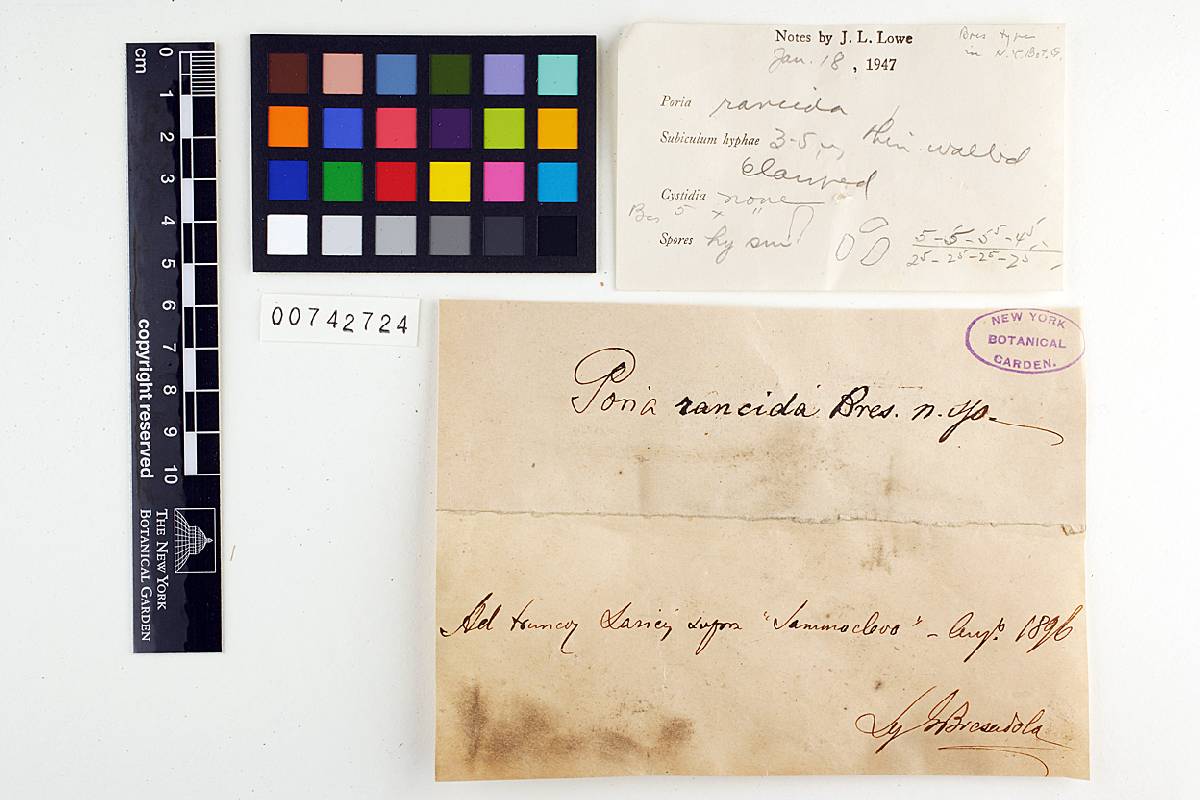 0 1 2 3 4 5 6 7 8 9 10
cm
copyright reserved
THE NEW YORK
BOTANICAL GARDEN
Notes by J. L. Lowe
Jan. 18, 1947
Bres type
in N.Y.Bot.G.
Poria rancida
Subiculum hyphae 3-5 µ, thin walled
clamped
Cystidia none
Bas 5 x
Spores hy sm
5 - 5 - 5⁵ - 4⁵
2⁵ - 2⁵ - 2⁵ - 2⁵
00742724
NEW YORK
BOTANICAL
GARDEN.
Poria rancida Bres. n. sp.
Ad truncos Laricis supra " " - Aug. 1896
Lg J Bresadola